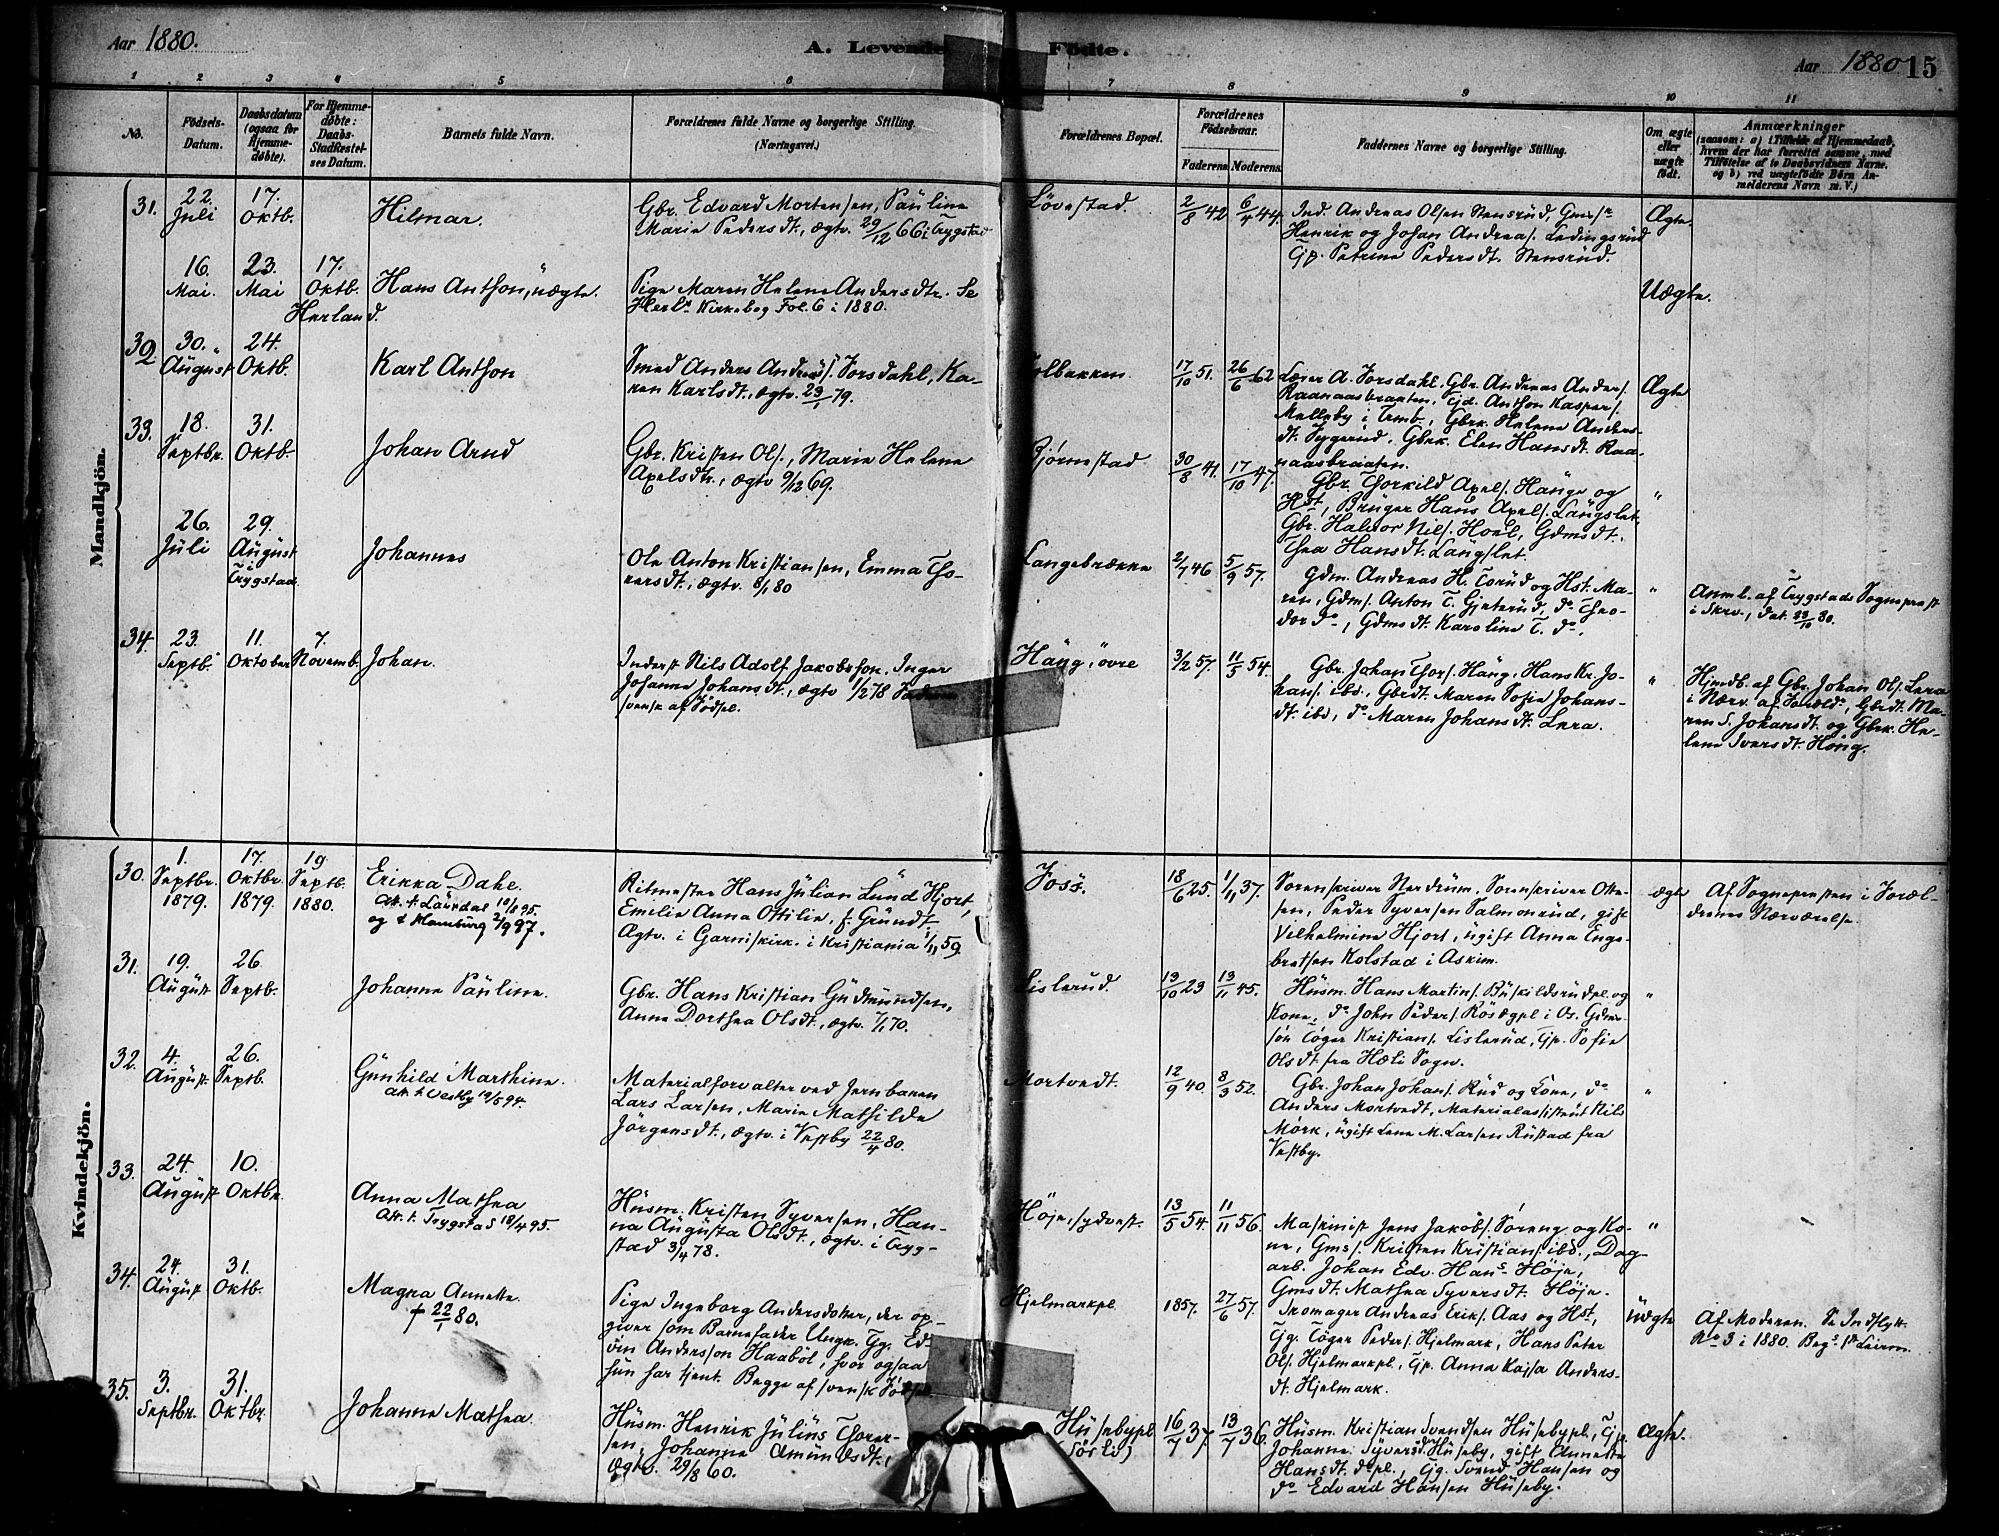 Aar 1880.
A. Levende Födte.
Aar 1880 15
1 2 3 4 5 6 7 8 9 10 11
No.
Födsels-
Datum.
Daabsdatum
(ogsaa for
Hjemme-
döbte).
For Hjemme-
döbte:
Daabs-
Stadfæstel-
ses Datum.
Barnets fulde Navn.
Forældrenes fulde Navne og borgerlige Stilling.
(Næringsvei.)
Forældrenes Bopæl.
Forældrenes
Födselsaar.
Faderens. Moderens.
Faddernes Navne og borgerlige Stilling.
Om ægte
eller
uægte
födt.
Anmærkninger
(saasom: a) i Tilfælde af Hjemmedaab,
hvem der har forrettet samme, med
Tilföielse af to Daabsvidners Navne,
og b) ved uægtefödte Börn An-
melderens Navn m. V.)
Mandkjön.
31.
22.
Juli
17.
Oktb.
Hilmar.
Gbr. Edvard Mortensen, Pauline
Marie Pedersdt., ægtv. 29/12 66 i Trygstad
Løvestad.
2/8 42
6/4 44.
Ind. Andreas Olsen Stensrud, Gmss
Henrik og Johan Andreas. Ledingsrud
Gp. Petrine Pedersdt. Stensrud.
Ægte.
16.
Mai.
23.
Mai
17.
Oktb.
Herland.
Hans Anthon, uægte.
Pige Maren Helene Andersdtr. Se
Herl. Kirkebog Fol. 6 i 1880.
Uægte.
32
30.
August
24.
Oktb.
Karl Anthon
Smed Anders Andreas. Forsdahl, Ka-
ren Karlsdt., ægtv. 23/1 79.
Kolbakken.
17/10 51.
26/6 62
Læier A. Forsdahl, Gbr. Andreas Anders.
Raanaasbraaten, Gd. Anthon Kaspers.
Melleby i Trmb., Gbrk. Helene Anders-
dt. Tygerud, Gbrk. Elen Hansdt. Raa-
naasbraaten.
Ægte
33.
18.
Septbr.
31.
Oktb.
Johan Arnd
Gbr. Kristen Ols., Marie Helene
Axelsdtr., ægtv 9/12 69.
Bjørnestad
30/8 41.
17/10 47.
Gbr. Thorkild Axels. Hauge og
Hst., Bruger Hans Axels. Langslet,
Gbr. Halvor Nils. Hoel, Gdmsdt.
Thea Hansdt. Langslet.
"
26.
Juli
29.
August
i
Trygstad.
Johannes
Ole Anton Kristiansen, Emma Tho-
rersdt., ægtv. 8/1 80
Langebrække
2/7 46
5/9 57.
Gdm. Andreas H. Torud og Hst. Ma-
ren, Gdms. Anton T. Gjeterud, do Theo-
dor do, Gdmsdt. Karoline T. do.
"
Anml. af Trygstads Sogneprest
i Skrv., dat. 23/10 80.
34.
23.
Septb.
11.
Oktober
7.
Novemb.
Johan.
Inderst Nils Adolf Jakobsson, Inger
Johanne Johansdt., ægtv 1/2 78 Faderen
svensk af Fødsel.
Haug, øvre
3/2 57.
11/5 54.
Gbr. Johan Thors. Haug, Hans Kr. Jo-
hans. ibd., Gbrdt. Maren Sofie Johans-
dt. ibd, do Maren Johansdt. Lera.
"
Hjmdb. af Gbr. Johan Ols. Lera
i Nærv. af Foræld., Gbrdt. Ma-
ren S. Johansdt. og Gbrk. He-
lene Iversdt. Høig.
Kvindekjön.
30.
1.
Septbr.
1879.
17.
Oktbr.
1879.
19
Septb.
1880.
Erikka Dahe.
Att. t. Laurdal 10/8 95.
og t. Hamburg 2/9 97.
Ritmester Hans Julian Lund Hjort,
Emilie Anna Ottilie, f. Grundt,
Ægtv. i Garniskirk. i Kristiania 1/11 59.
Foss.
18/6 25.
1/11 37.
Sorenskriver Nerdrum, Sorenskriver Otte-
sen, Peder Syversen Salmonrud, gift
Vilhelmine Hjort, ugift Anna Enge-
bretsen Kolstad i Askim.
ægte
Af Sognepresten i Foræl-
drenes Nærværelse.
31.
19.
August
26.
Septb.
Johanne Pauline.
Gbr. Hans Kristian Gudmundsen,
Anne Dorthea Olsdt., ægtv. 7/1 70.
Lislerud.
13/10 23
13/11 45.
Husm. Hans Martins. Buskildsrudpl. og
Kone, do John Peders. Røsægpl i Os. Gdm-
søn Tøger Kristians. Lislerud, Gp. Sofie
Olsdt. fra Hæli Sogn.
"
32.
4.
August
26.
Septb.
Gunhild Marthine.
Att. t. Vestby 19/5 94.
Materialforvalter ved Jernbanen
Lars Larsen, Marie Mathilde
Jørgensdt., ægtv. i Vestby 22/4 80.
Mortvedt.
12/9 40
8/3 52.
Gbr. Johan Johans. Rud og Kone, do
Anders Mortvedt, Materialassistent Nils
Mørk, ugift Lene M. Larsen Rustad fra
Vestby.
"
33.
24.
August
10.
Oktbr.
Anna Mathea
Att. t. Trygstad 18/4 95.
Husm. Kristen Syversen, Han-
na Augusta Olsdt., ægtv. i Tryg-
stad 3/4 78.
Høje, sydvest.
13/5 54.
11/11 56.
Maskinist Jens Jakobs. Søreng og Ko-
ne, Gms. Kristen Kristians. ibd., Dag-
arb. Johan Edv. Hans. Høje,
Gmsdt. Mathea Syversdt. Høje.
"
34.
24.
August
31.
Oktb.
Magna Annette.
† 22/1 80.
Pige Ingeborg Andersdotter, der op-
giver som Barnefader Ungk. Gg. Ed-
vin Andersson Haabøl, hvor ogsaa
hun har tjent. Begge af svensk Fødsel
Hjelmarkpl.
1857.
27/6 57.
Skomager Andreas Eriks. Aas og Hst,
Gg. Tøger Peders. Hjelmark, Hans Peter
Ols. Hjelmarkpl., Gp. Anna Kajsa Anders-
dt. Hjelmark.
Uægte
Af Moderen. Se Indflytt.
No 3 i 1880.
35.
3.
Septbr.
31.
Oktbr.
Johanne Mathea.
Husm. Henrik Julius Thorer-
sen, Johanne Amundsdt.,
ægtv. 29/8 60.
Husebypl.
16/7 37.
13/7 36
Husm. Kristian Svendsen Husebypl., Gp.
Johanne Syversdt. Huseby, gift Annette
Hansdt. do pl., Gg. Svend Hansen og
do Edvard Hansen Huseby.
Ægte.